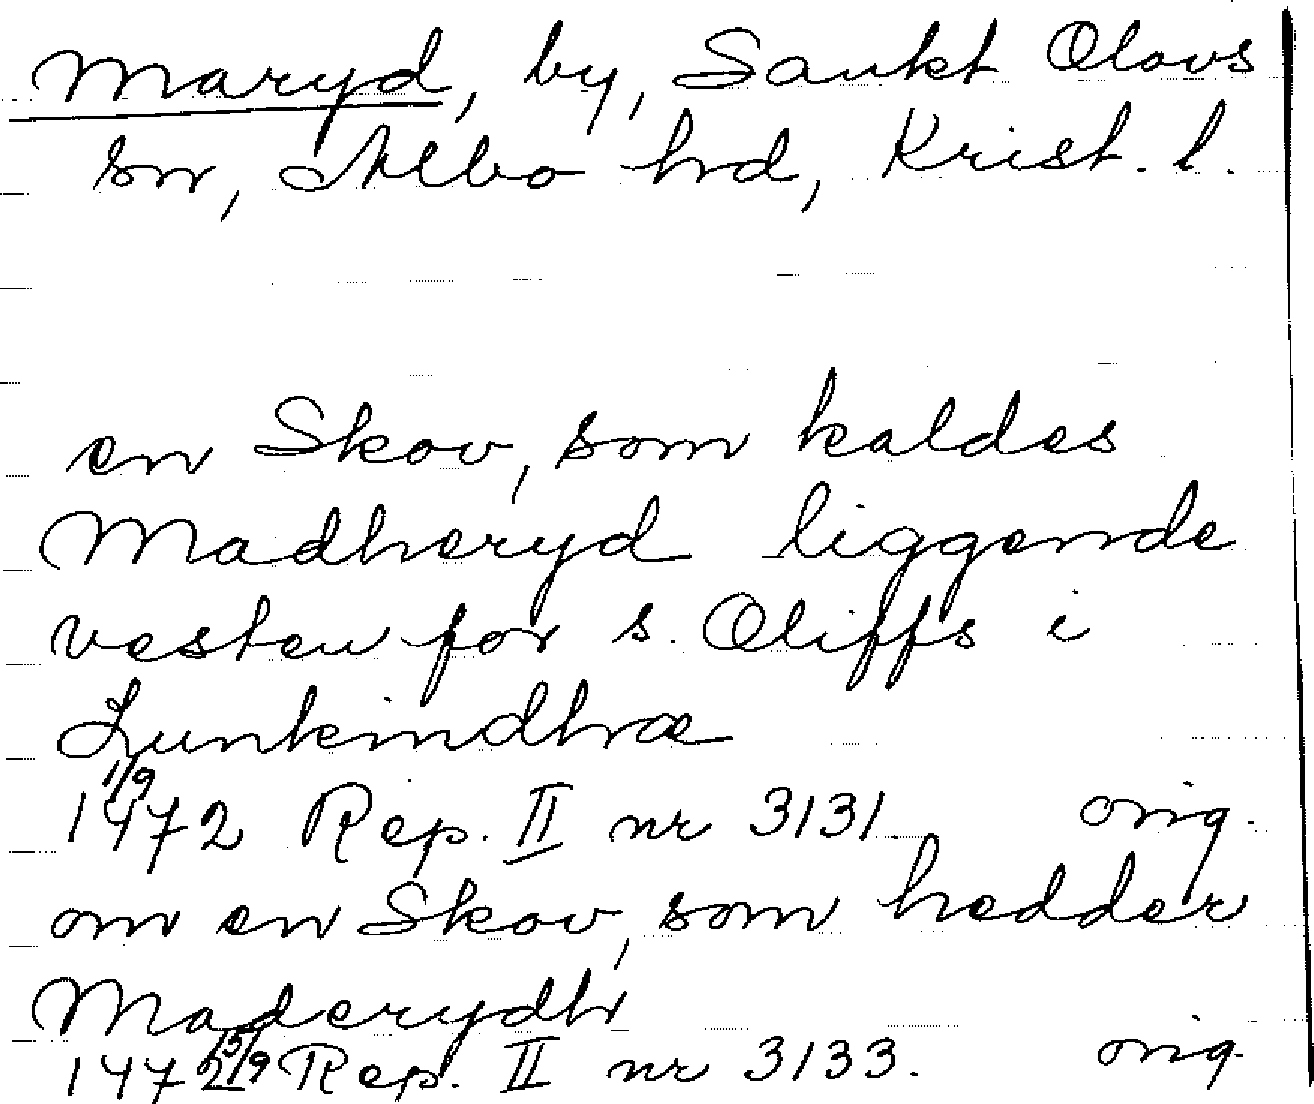 Maryd, by, Sankt Olovs
sn, Albo hrd, Krist. l.
en Skov, som kaldes
Madheryd liggende
vesten for s. Oliffs i
Lunkindhræ
1/9
1472 Rep. II nr 3131. orig.
om en Skov, som hedder
Maderydh
1472 15/9 Rep. II nr 3133. orig.